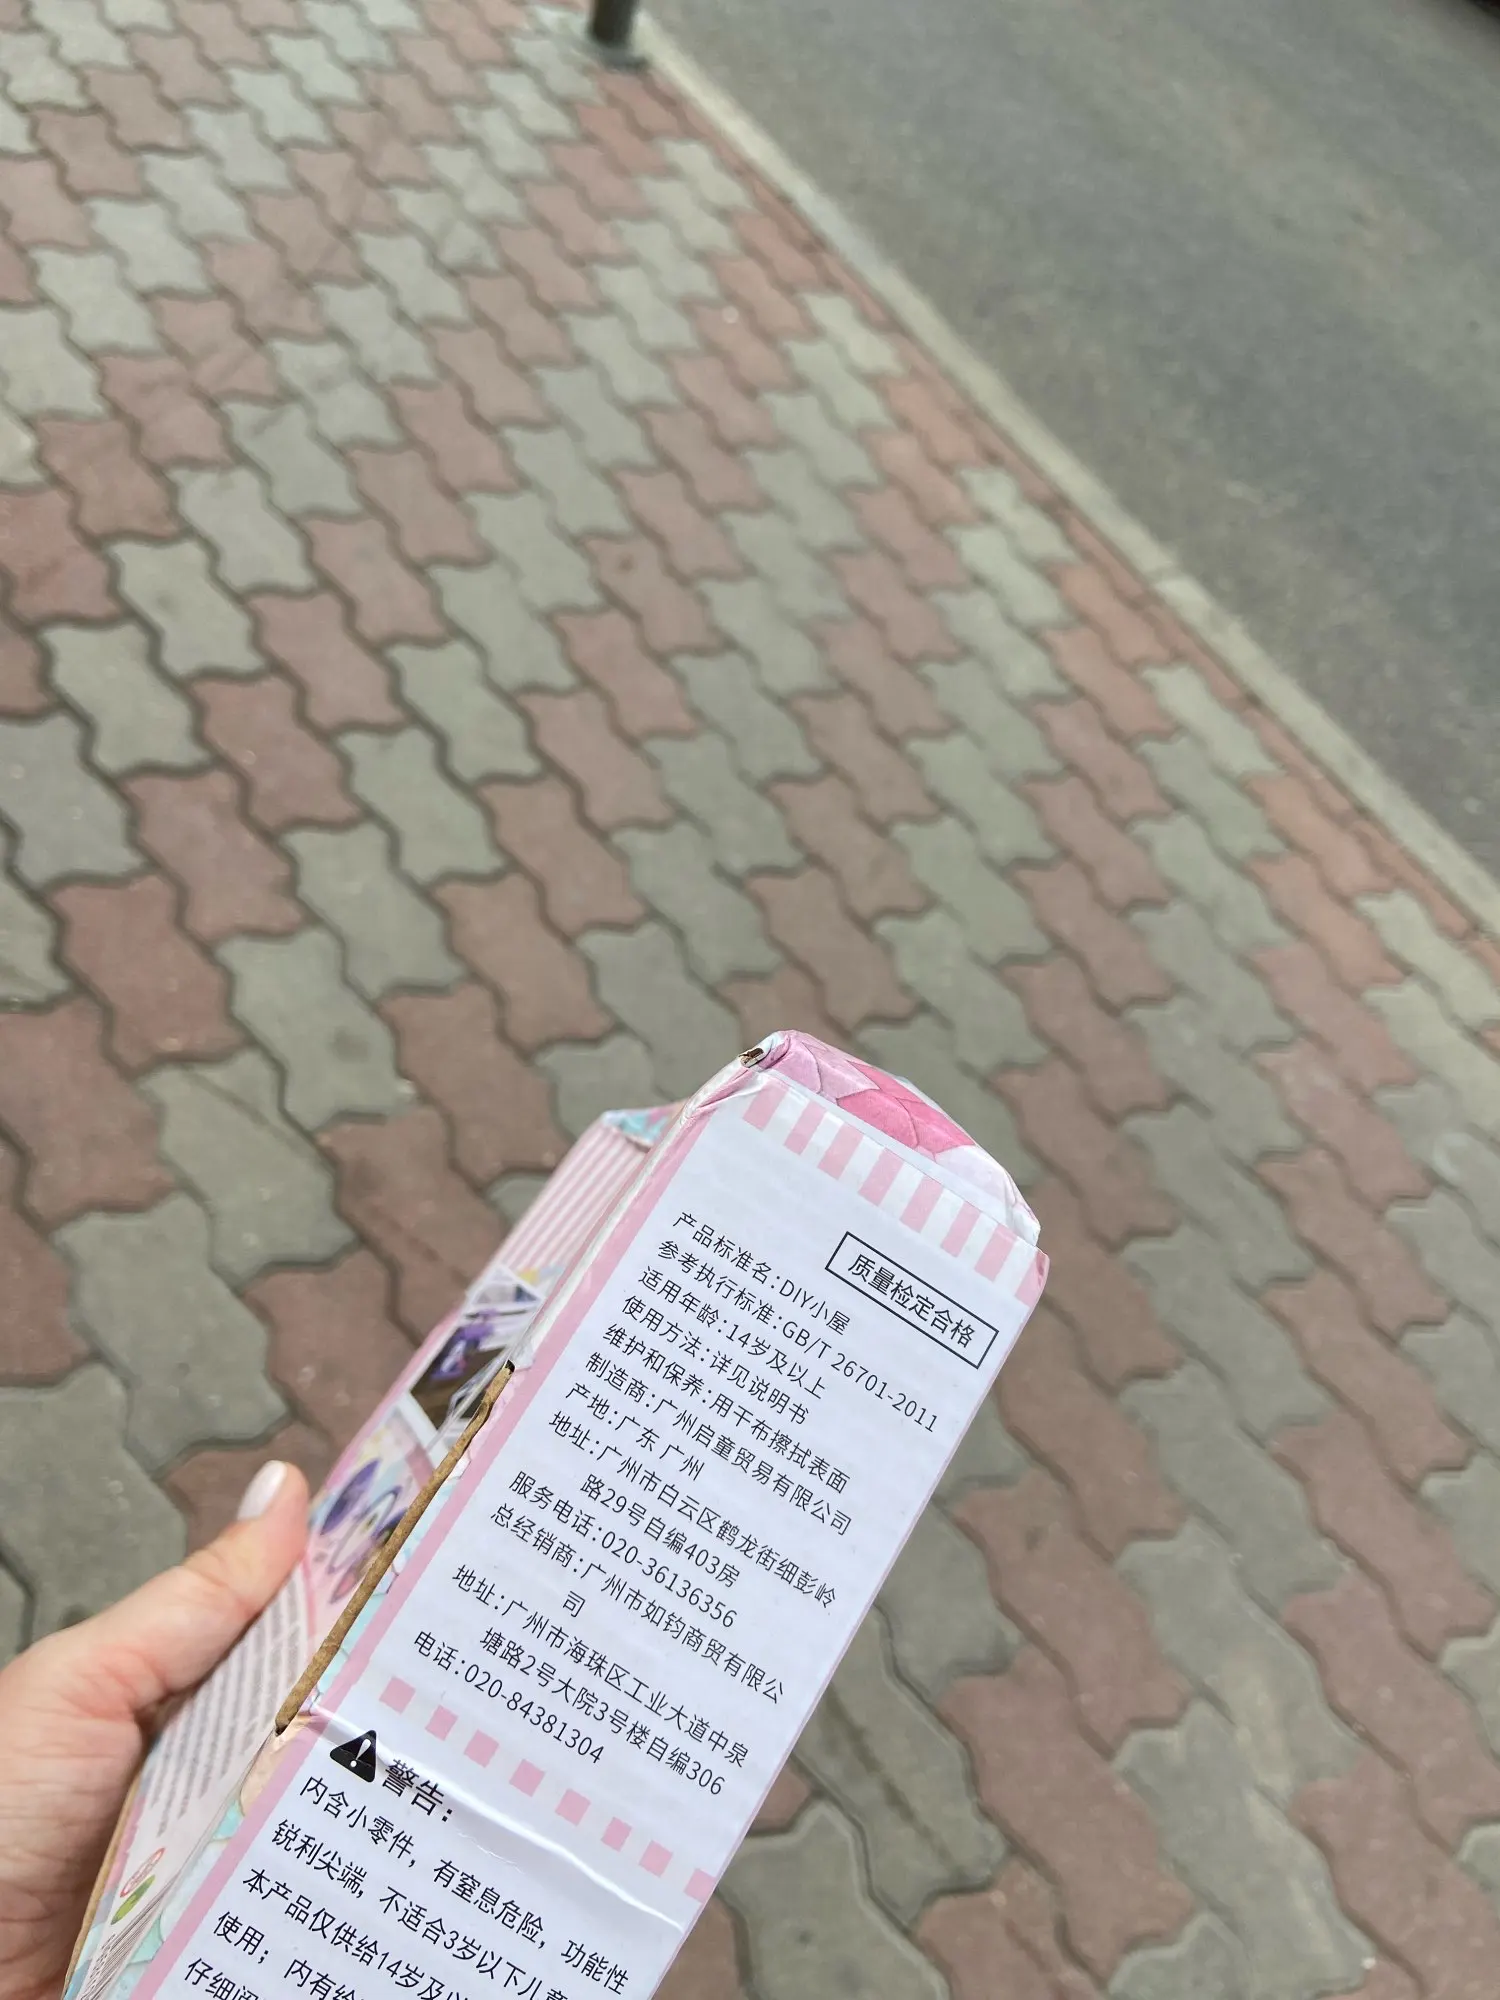 质量检定合格
产品标准名:DIY小屋
参考执行标准:GB/T 26701-2011
适用年龄:14岁及以上
使用方法:详见说明书
维护和保养:用干布擦拭表面
制造商:广州启童贸易有限公司
产地:广东 广州
地址:广州市白云区鹤龙街细彭岭
路29号自编403房
服务电话:020-36136356
总经销商:广州市如钧商贸有限公
司
地址:广州市海珠区工业大道中泉
塘路2号大院3号楼自编306
电话:020-84381304
警告:
内含小零件，有窒息危险，功能性
锐利尖端，不适合3岁以下儿童
本产品仅供给14岁及以
使用；内有
仔细阅